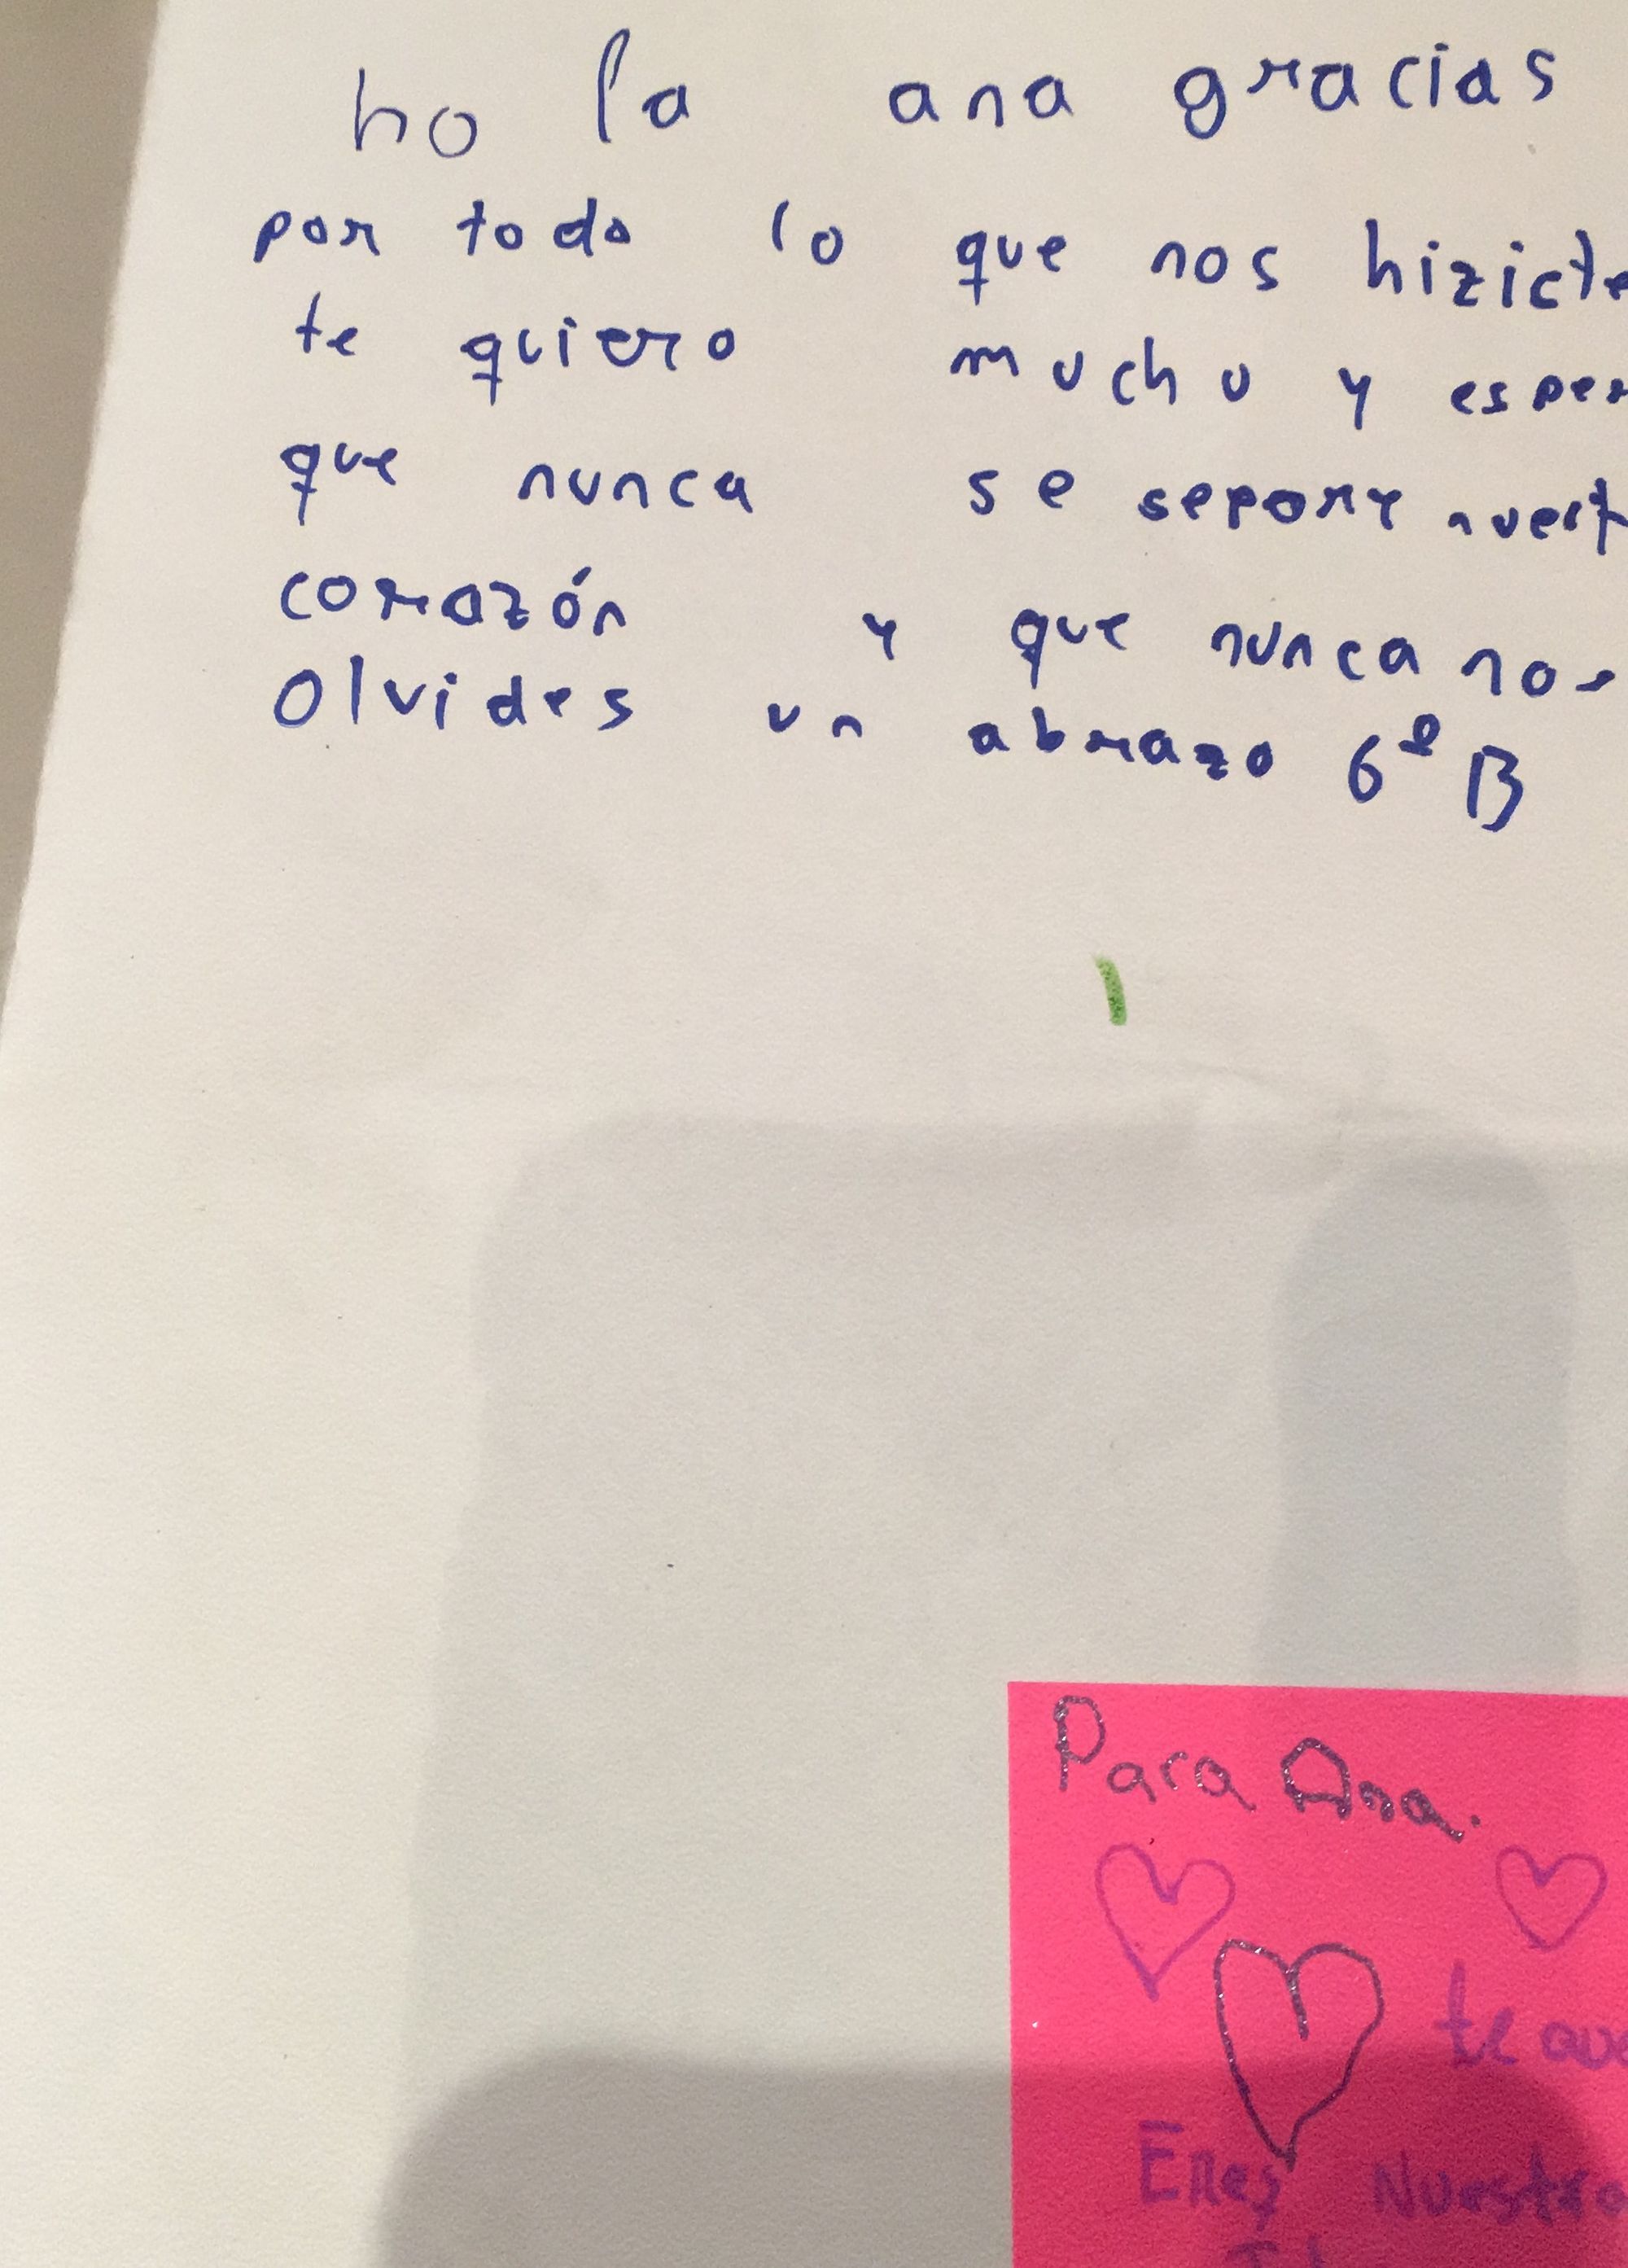 ho la ana gracias
por todo lo que nos hizicte
te quiero mucho y esper
que nunca se separe nuest
corazón y que nunca nos
olvides un abrazo 6º B
Para Ana.
te
Eres Nuestra